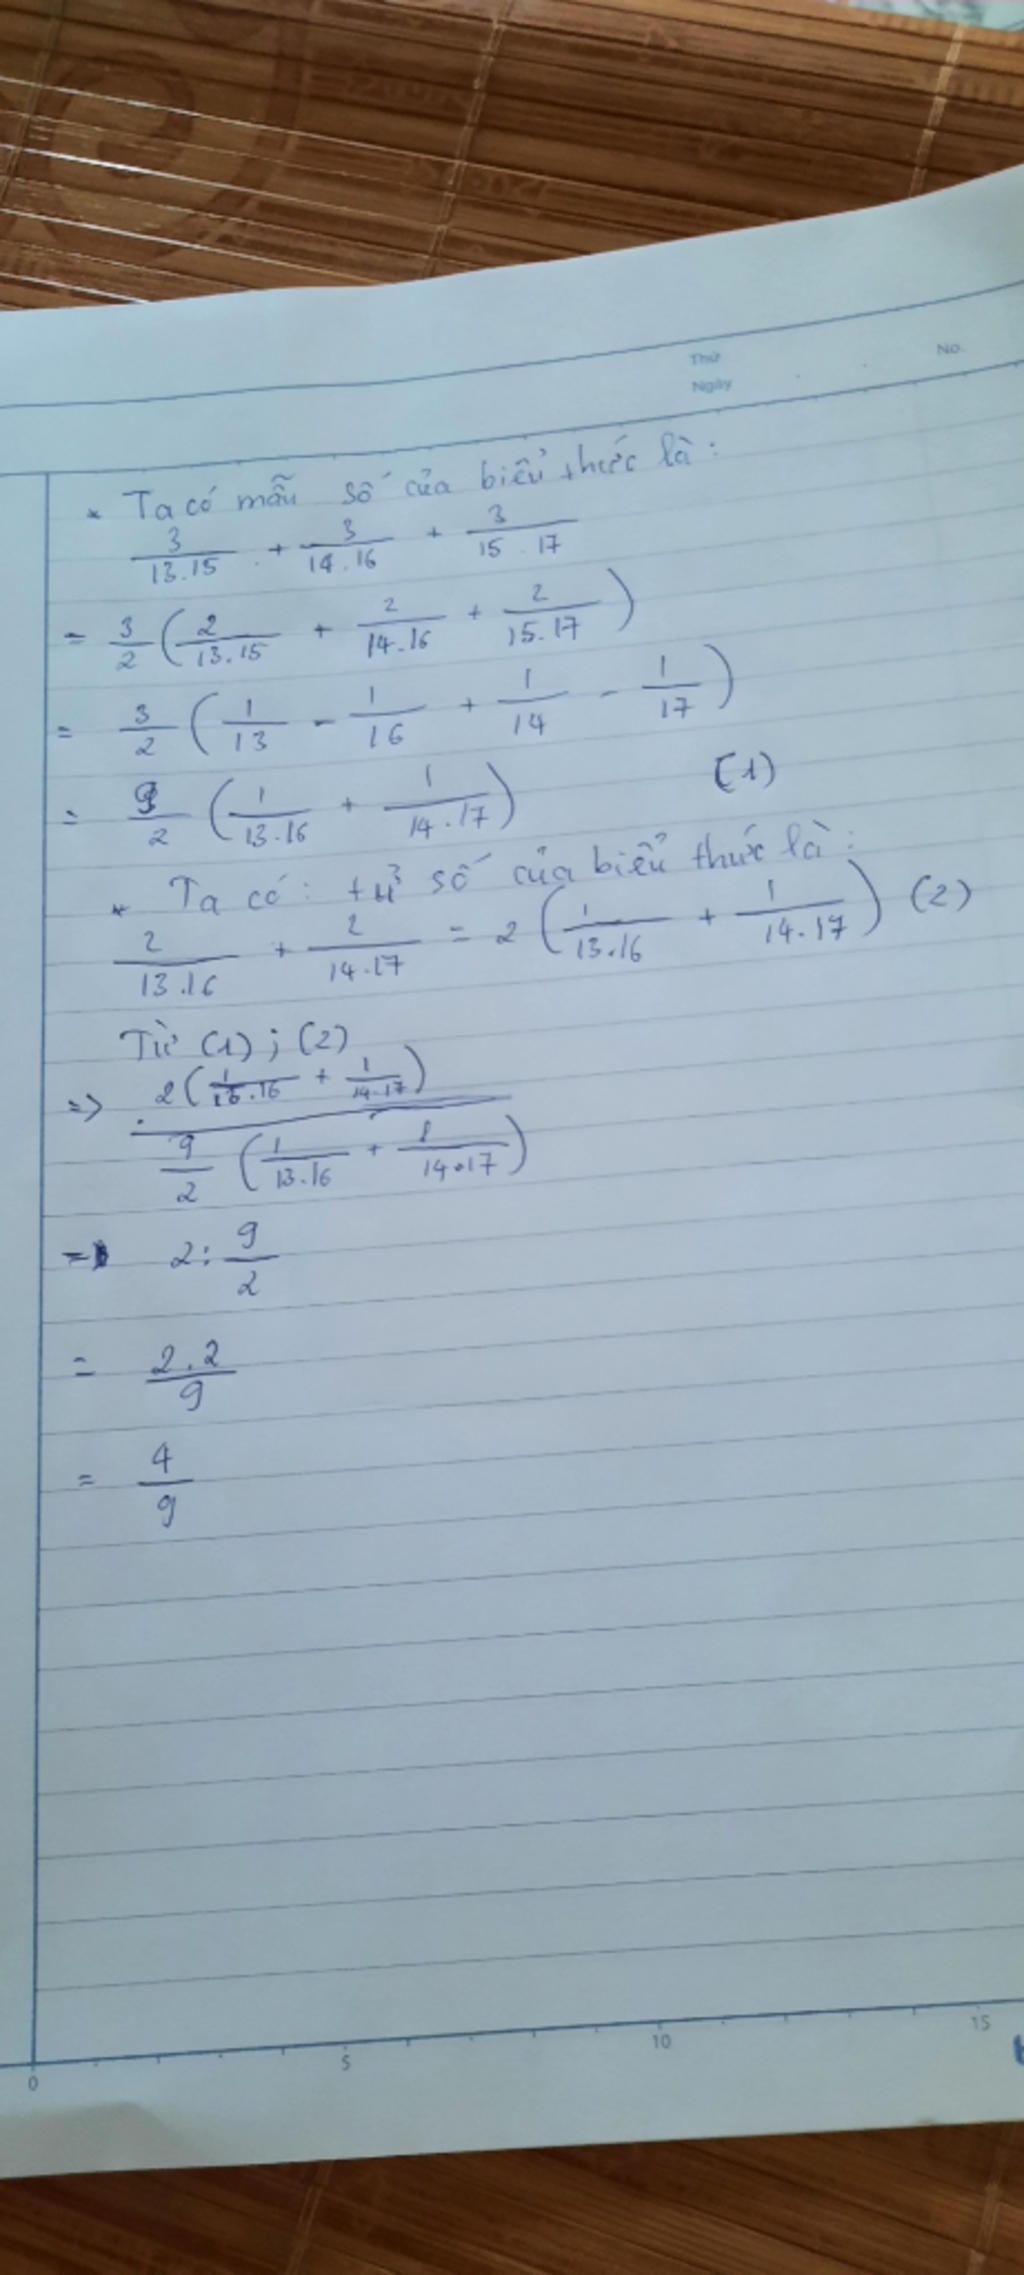 Thứ
No.
Ngày
* Ta có mẫu số của biểu thức là:
3/13.15 + 3/14.16 + 3/15.17
= 3/2 (2/13.15 + 2/14.16 + 2/15.17)
= 3/2 (1/13 - 1/16 + 1/14 - 1/17)
= 9/2 (1/13.16 + 1/14.17) (1)
* Ta có: tử số của biểu thức là:
2/13.16 + 2/14.17 = 2 (1/13.16 + 1/14.17) (2)
Từ (1); (2)
=> 2(1/13.16 + 1/14.17) / 9/2 (1/13.16 + 1/14.17)
= 2 : 9/2
= 2.2/9
= 4/9
0 5 10 15